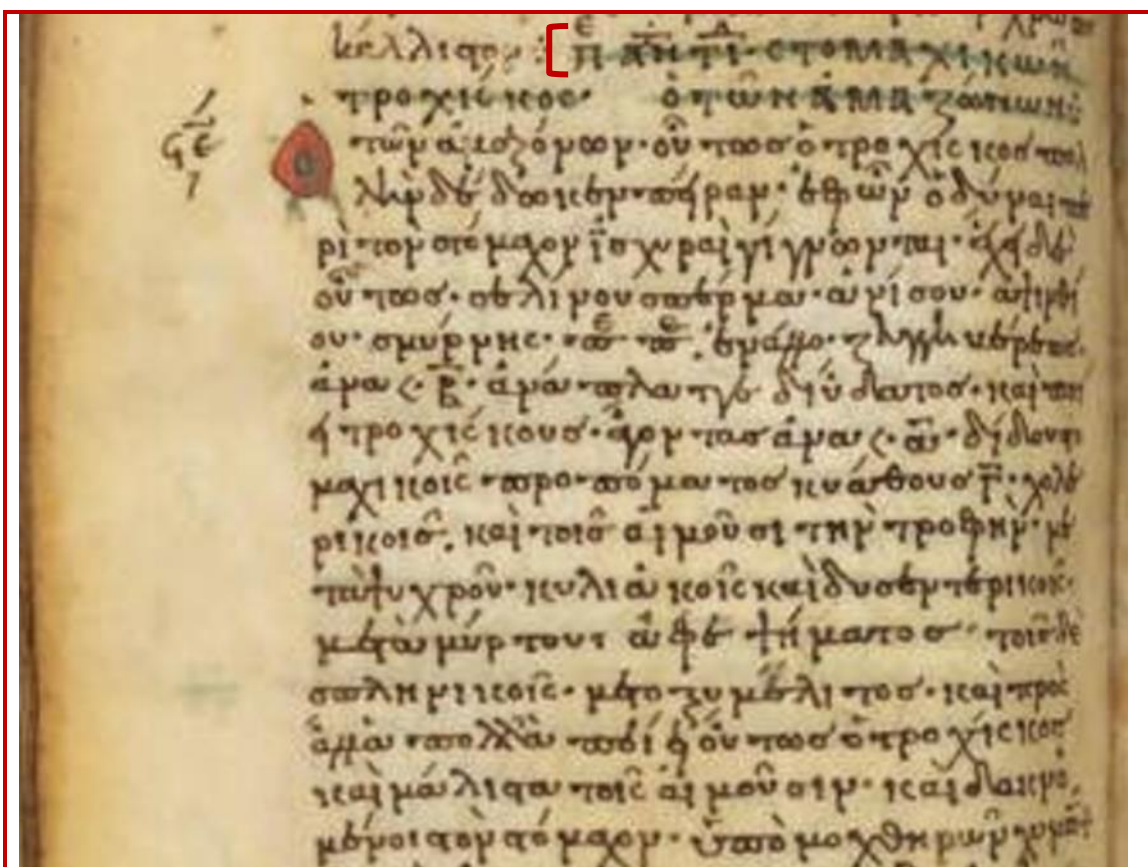 κάλλιστον :
ΠΑΝΤΙ· ΣΤΟΜΑΧΙΚΩΝ
τροχίσκος· ὁ τῶν ἀμαζόνων:
Ϛε
τῶν ἀμαζόνων· οὗτος ὁ τροχίσκος πολ
λὴν δέδωκεν πεῖραν· ἐφ ὧν ὀδύναι πε
ρὶ τὸν στόμαχον ἰσχυραὶ γίγνονται· ἔχει δὲ
οὕτως· σελίνου σπέρμα· ἀνίσου· ἀψινθί
ου· σμύρνης· πεπέρεως·
ἀνα β· ἀνάπλαττε δι ὕδατος· καὶ ποί
ει τροχίσκους· ἄγοντας ἀνα α· δίδου
μαχικοῖς προπόματος κυάθους γ· χολε
ρικοῖς· καὶ τοῖς αἰμοῦσι τὴν τροφὴν· με
τα ψυχροῦ· κυλιακοῖς καὶ δυσεντερικοῖς·
μετὰ μύρτου ἀφεψήματος· τοῖς δὲ
σπληνικοῖς· μετ ὀξυμέλιτος· καὶ πρὸς
ἄλλα πολλὰ ποιεῖ οὗτος ὁ τροχίσκος
καὶ μάλιστα τοῖς αἰμοῦσιν· καὶ δακνο
μένοις τὸν στόμαχον· ὑπὸ μοχθηρῶν χυμῶν